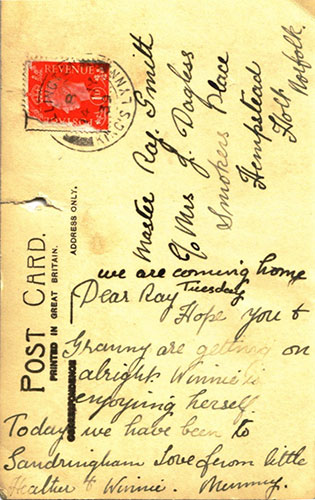 POST CARD.
PRINTED IN GREAT BRITAIN.
ADDRESS ONLY.
REVENUE
KING'S LYNN
Master Ray. Smitt
c/o Mrs J. Dagless
Smokers Place
Hempstead
Holt Norfolk.
we are coming home
Tuesday
Dear Ray
Hope you &
Granny are getting on
alright. Winnie is
enjoying herself
Today we have been to
Sandringham Love from little
Heather & Winnie. Mummy.